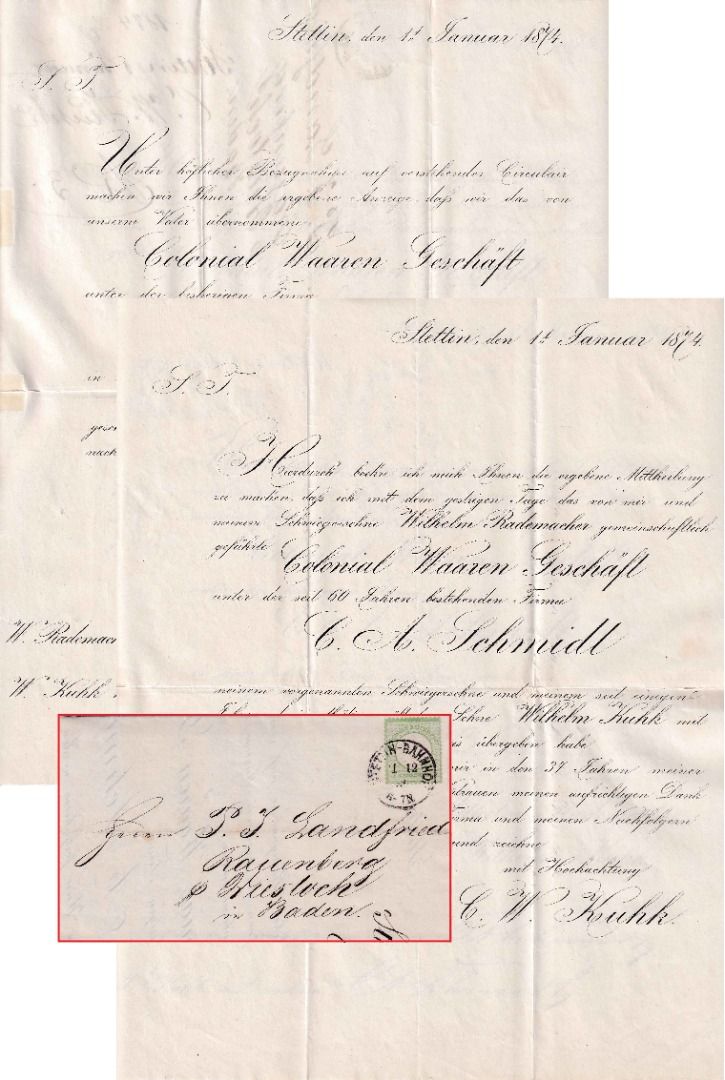 Stettin, den 1t Januar 1874.
S. T.
Unter höflicher Bezugnahme auf vorstehendes Circulair
machen wir Ihnen die ergebene Anzeige, daß wir das von
unserm Vater übernommene
Colonial Waaren Geschäft
unter der bisherigen Firma
in
nach
W. Rademac
W. Kuhk
Stettin, den 1t Januar 1874.
S. T.
Hierdurch beehre ich mich Ihnen die ergebene Mittheilung
zu machen, daß ich mit dem gestrigen Tage das von mir und
meinem Schwiegersohne Wilhelm Rademacher gemeinschaftlich
geführte
Colonial Waaren Geschäft
unter der seit 60 Jahren bestehenden Firma
C. A. Schmidt
meinem vorgenannten Schwiegersohne und meinem seit einigen
Sohne Wilhelm Kuhk mit
übergeben habe
in den 37 Jahren meiner
meinen aufrichtigen Dank
und meinen Nachfolgern
und zeichne
mit Hochachtung
C. W. Kuhk.
STETTIN-BAHNHOF
1 12
6-7N
Herrn P. J. Landfried
Rauenberg
p Wiesloch
in Baden.